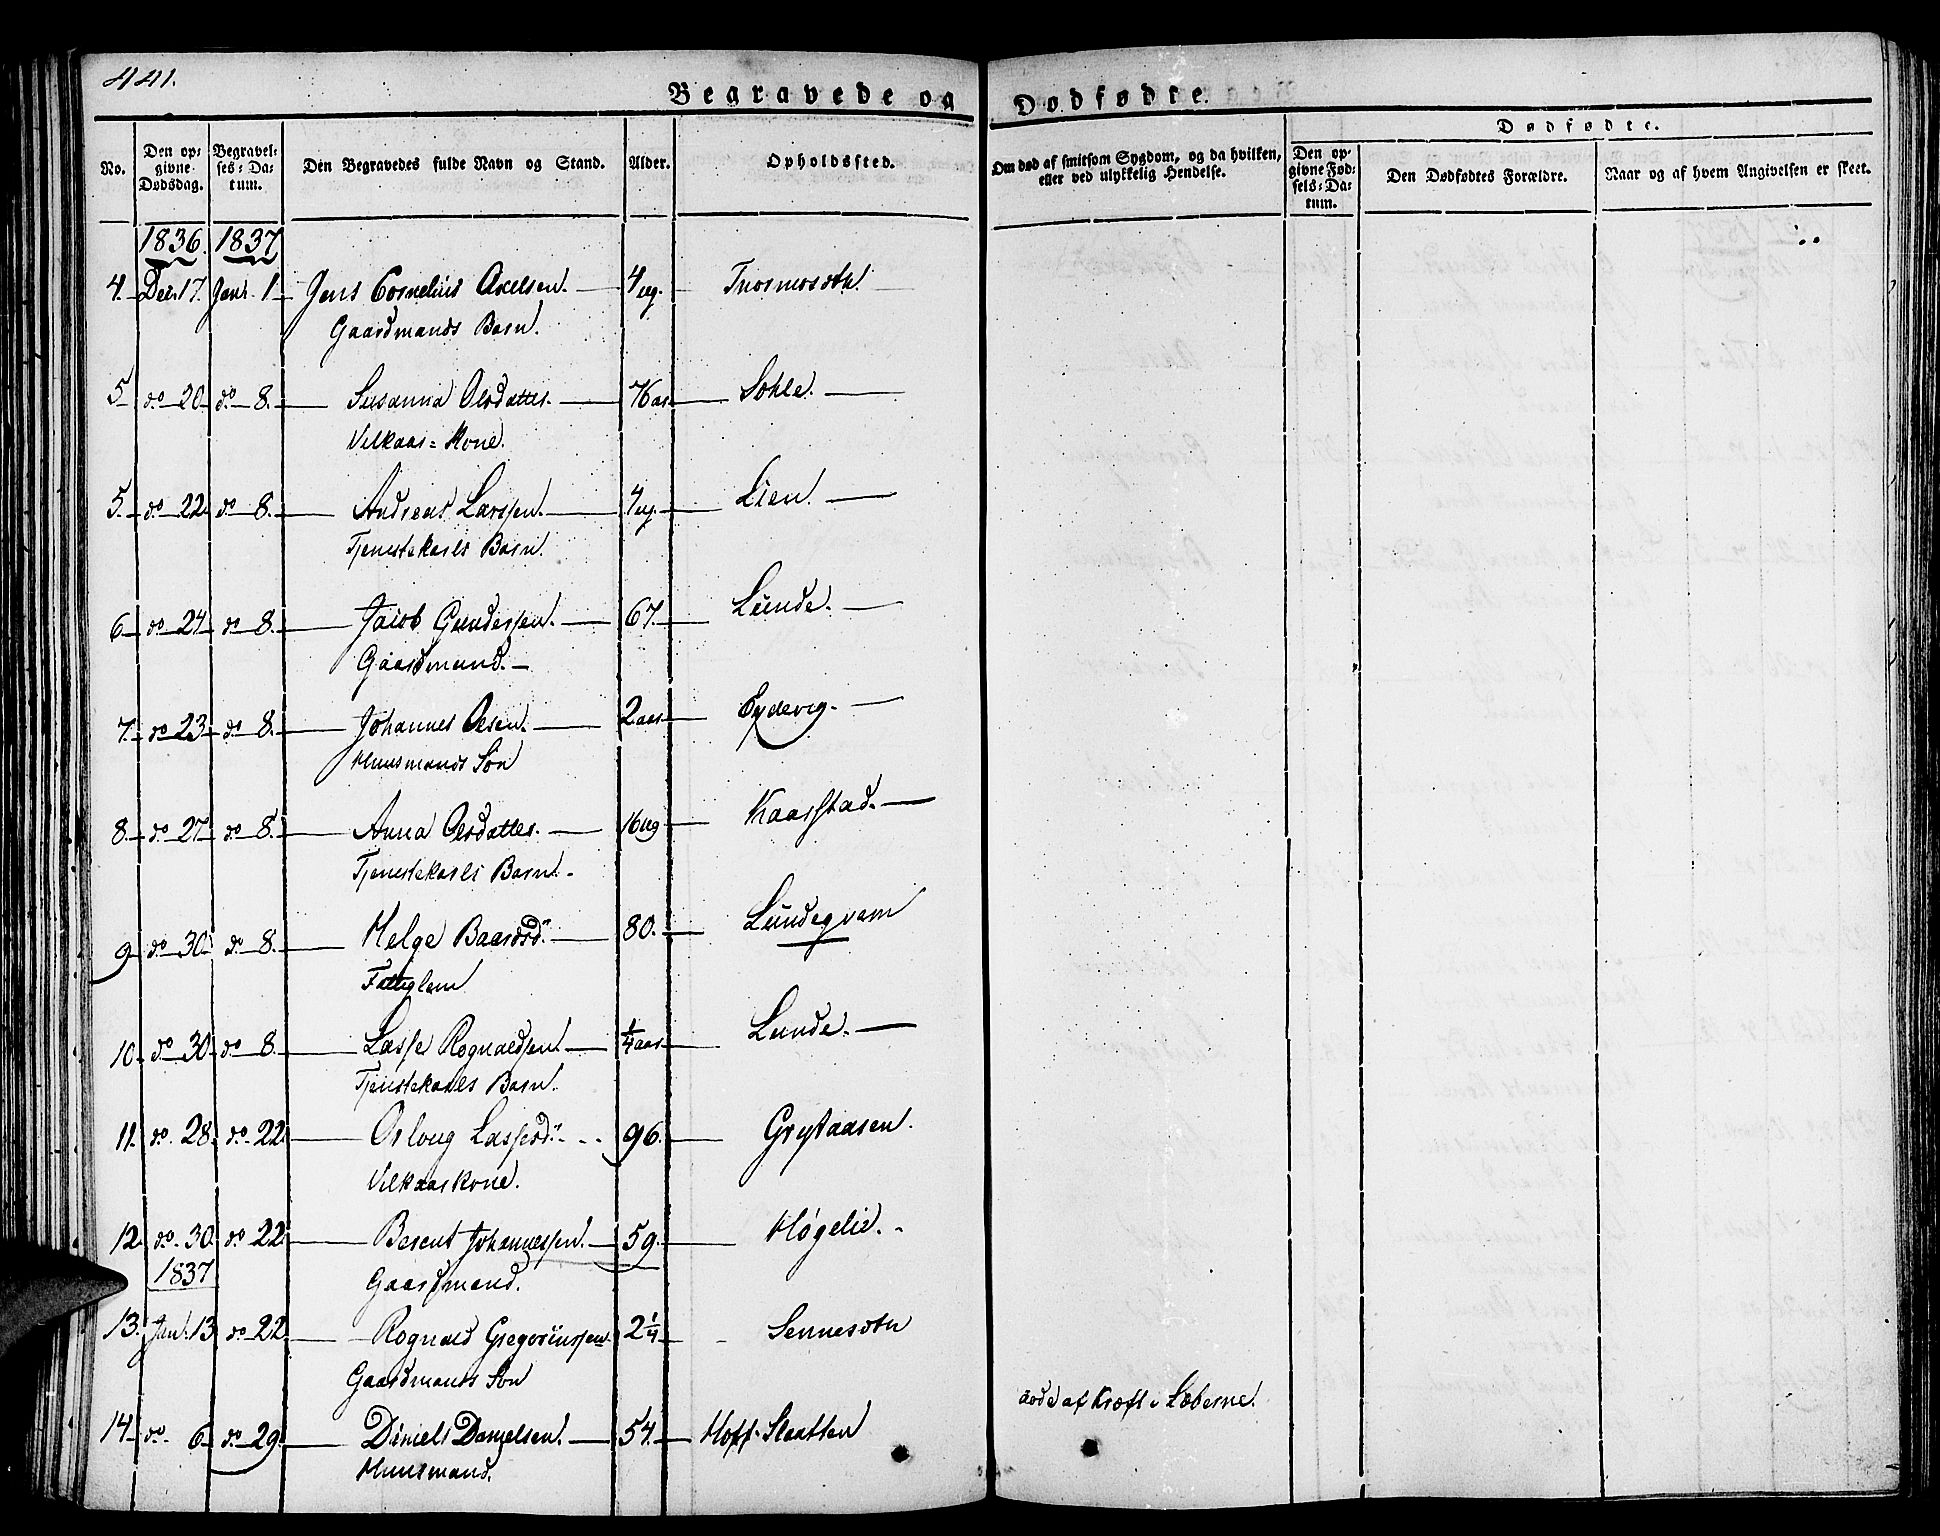 441.
Begravede og Dødfødte.
No.
Den opgivne Dødsdag.
Begravelses-Datum.
Den Begravedes fulde Navn og Stand.
Alder.
Opholdssted.
Om død af smitsom Sygdom, og da hvilken, eller ved ulykkelig Hendelse.
Dødfødte.
Den opgivne Fødsels-Datum.
Den Dødfødtes Forældre.
Naar og af hvem Angivelsen er skeet.
1836. 1837
4. Dec. 17. Janr. 1 Jens Cornelius Axelsen. 4 ug.
Gaardmands Barn.
5 do 20 do 8. Susanna Olsdatter. 76 aar Sohle.
Vilkaars=Kone.
5. do 22 do 8. Andreas Larssen. 4 ug. Lien.
Tjenestekarls Barn.
6 do 24 do 8. Jacob Gundersen. 67. Lunde.
Gaardmand.
7. do 23 do 8. Johannes Olsen. 2 aar Eydevig.
Huusmands Søn
8. do 27 do 8. Anna Olsdatter. 16 ug Kaarstad.
Tjenestekarls Barn.
9 do 30. do 8. Helge Baardsd. 80. Lundeqvam
Fattiglem
10. do 30 do 8. Lasse Rognaldsen. 1/4 aar Lunde.
Tjenestekarls Barn.
11. do. 28. do 22. Oslaug Lassesd. 96. Grytaasen.
Vilkaarskone.
12. do. 30. do 22. Berent Johannessen. 59. Høgelid.
1837 Gaardmand.
13. Jan. 13 do 22. Rognald Gregoriussen 2 1/4 Sennesøtn
Gaardmands Søn
14. do 6 do 29. Daniel Danielsen. 54. Hoff-Slaatten døde af Kræft i Læberne.
Huusmand.